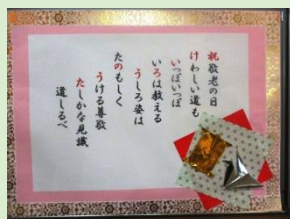 祝敬老の日
けわしい道も
いっぽいっぽ
いろは教える
うしろ姿は
たのもしく
うける尊敬
たしかな見識
道しるべ